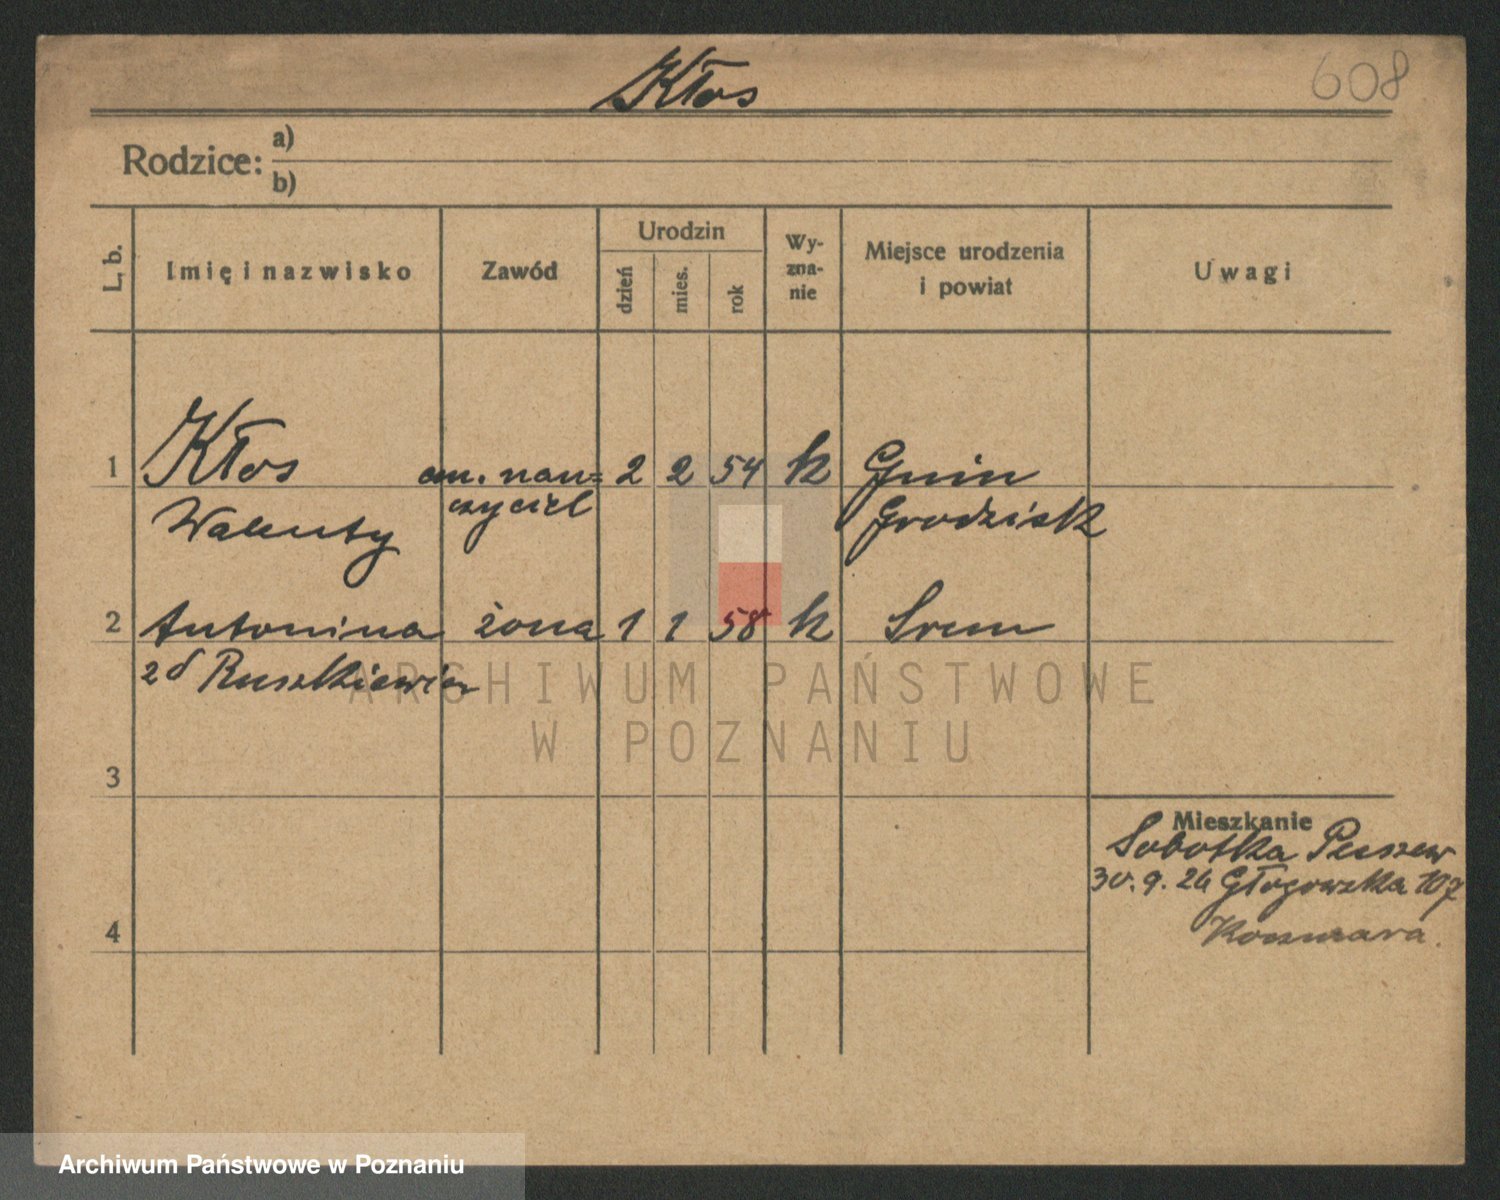 Kłos
608
Rodzice: a)
b)
L. b.
Imię i nazwisko
Zawód
Urodzin
dzień
mies.
rok
Wy-
zna-
nie
Miejsce urodzenia
i powiat
Uwagi
1 Kłos em. nau= 2 2 54 k Gnin
Walenty czyciel Grodzisk
2 Antonina żona 1 1 58 k Srem
zd Ruszkiewicz
ARCHIWUM PAŃSTWOWE
W POZNANIU
3
Mieszkanie
Sobotka Pleszew
30. 9. 26 Głogowska 107
4
Archiwum Państwowe w Poznaniu